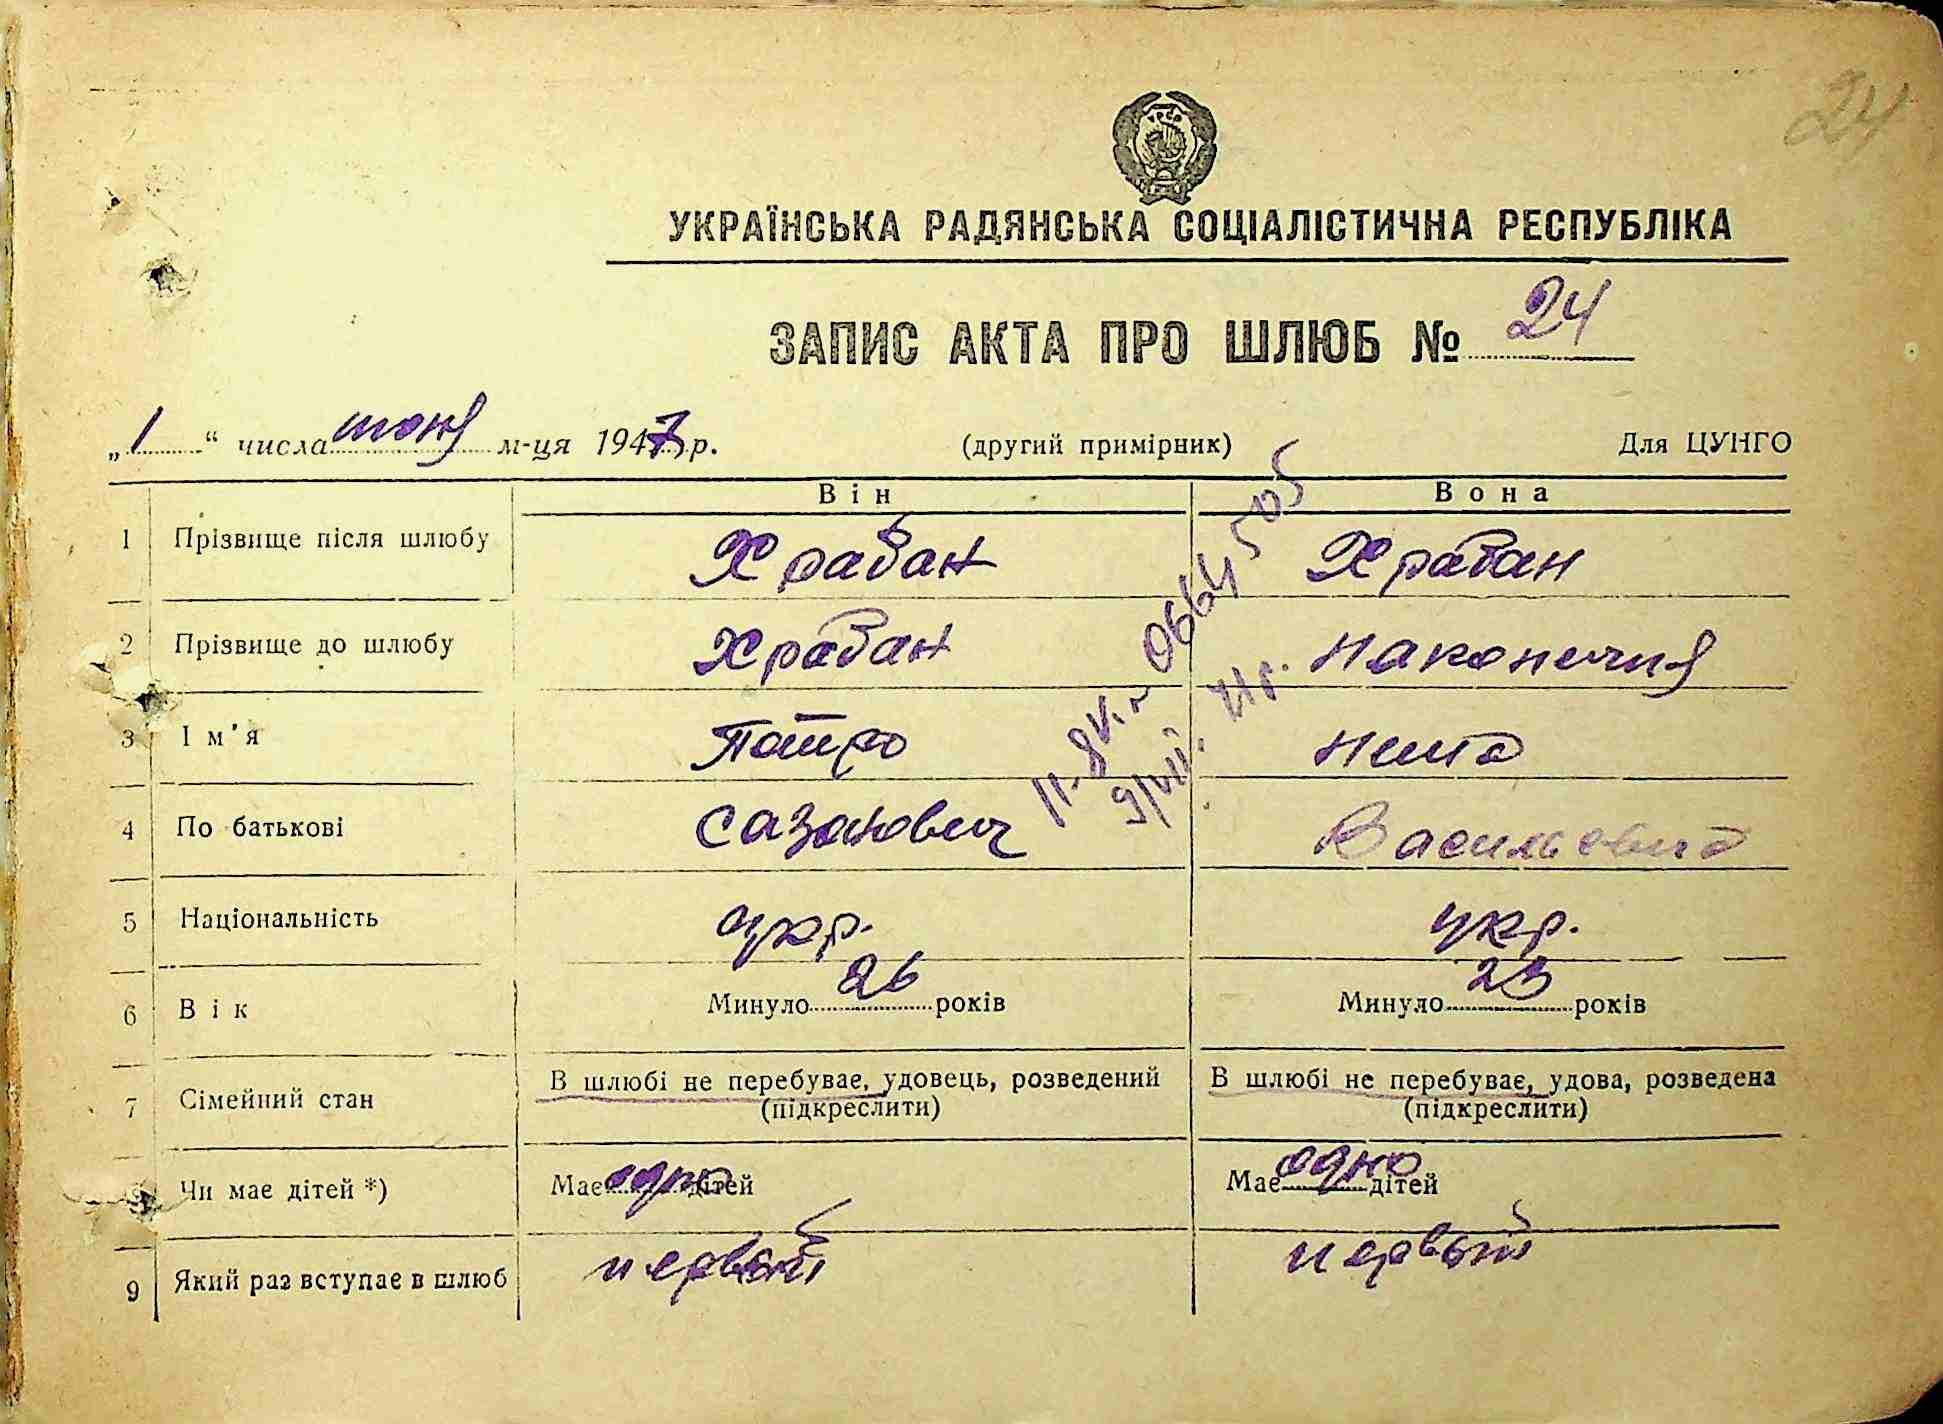 24
УРСР
УКРАЇНСЬКА РАДЯНСЬКА СОЦІАЛІСТИЧНА РЕСПУБЛІКА
ЗАПИС АКТА ПРО ШЛЮБ № 24
„1“ числа июня м-ця 1947 р. (другий примірник) Для ЦУНГО
Він Вона
1 Прізвище після шлюбу Храбан Храбан
2 Прізвище до шлюбу Храбан Наконечня
3 Ім'я Петро Нина
4 По батькові Сазонович Васильевна
5 Національність укр. укр.
6 Вік Минуло 26 років Минуло 23 років
7 Сімейний стан В шлюбі не перебуває, удовець, розведений В шлюбі не перебуває, удова, розведена
(підкреслити) (підкреслити)
8 Чи має дітей *) Має одно дітей Має одно дітей
9 Який раз вступає в шлюб первый первый
0664505
9/VII. 71 р.